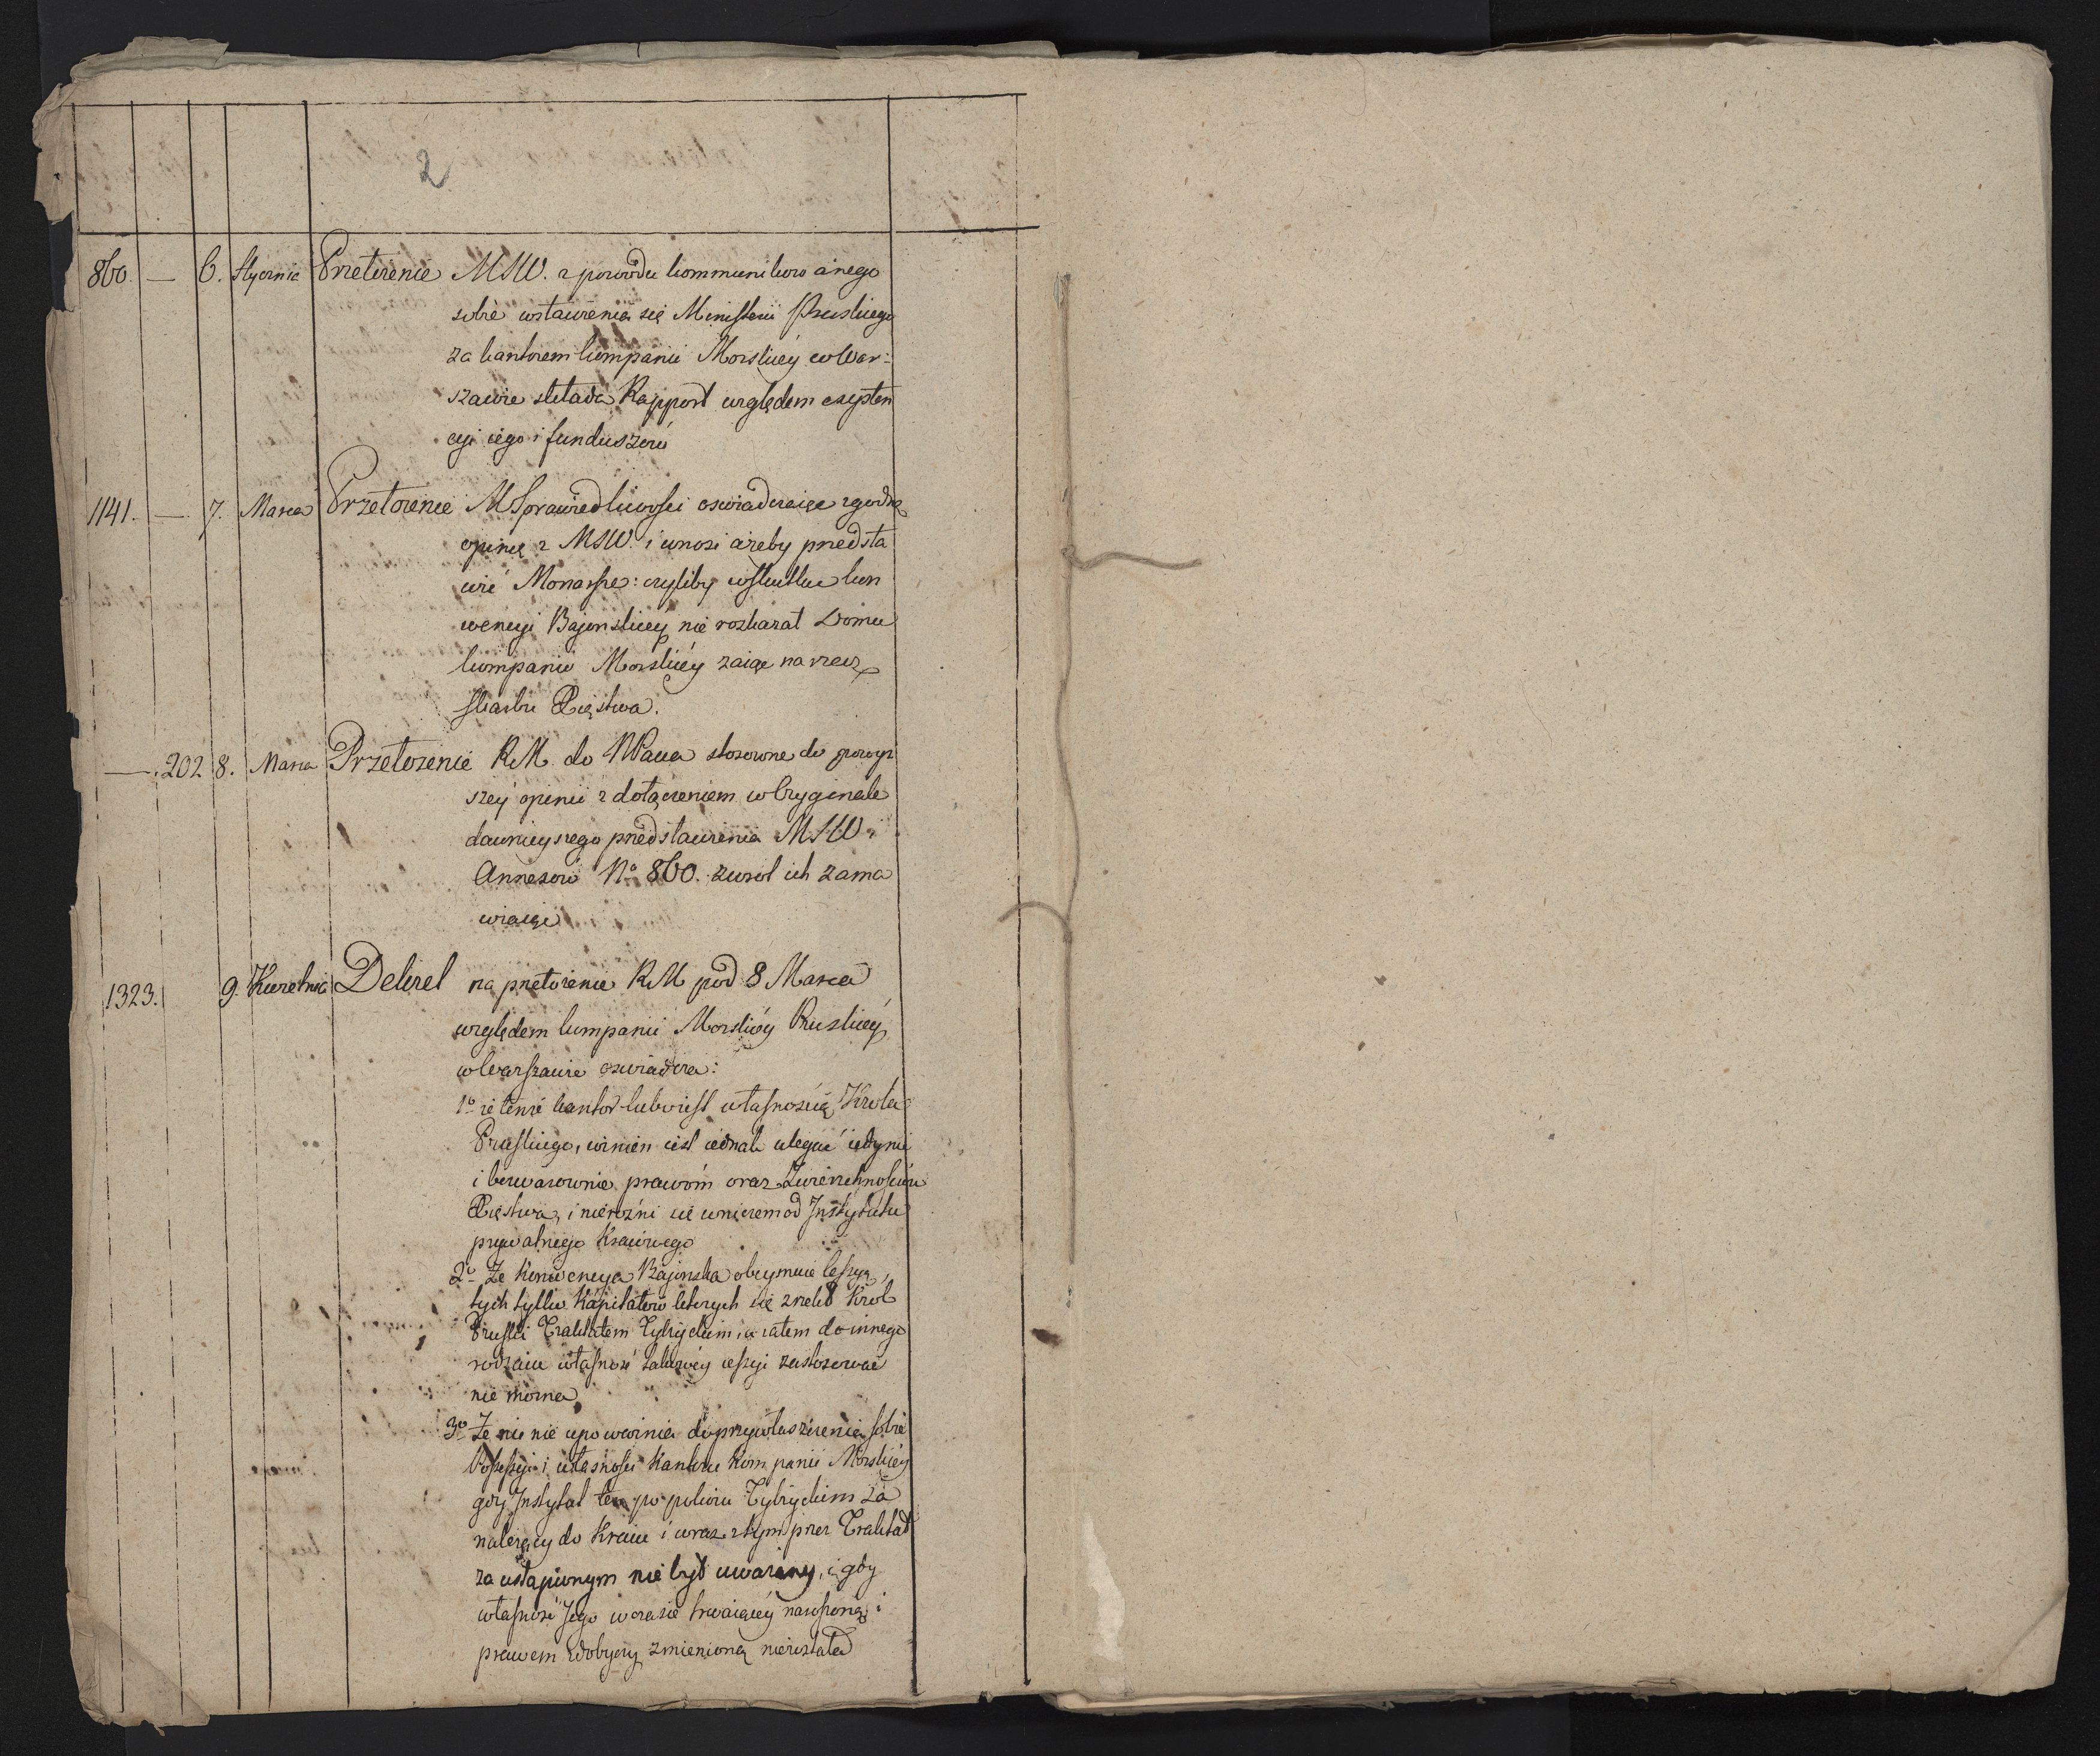 2
860. — 6. Stycznia Przełożenie MSW. z powodu kommunikowanego
sobie wstawienia się Ministerii Pruskiego
za kantorem kompanii Morskiéy w War:
szawie składa Rapport względem exysten
cyi iego i funduszów
1141. — 7. Marca Przełożenie MSprawiedliwości oswiadczaiące zgodną
opinię z MSW. i wnosi ażeby przedsta
wić Monarsze: czyliby w skutku kon
wencyi Bajońskiey nie rozkazał Domu
kompanii Morskiéy zaiąć na rzecz
skarbu Xięstwa.
— 202 8. Marca Przełożenie RM. do NPana stosowne do powyż
szey opinii z dołączeniem w Oryginale
dawnieyszego przedstawienia MSW i
Annexów No 860. zwrot ich zama
wiaiąc
1323. 9. Kwietnia Dekret na przełożenie RM pod 8 Marca
względem kompanii Morskiéy Pruskiéy
w Warszawie oswiadcza:
1o że tenże kantor lubo iest własnością Króla
Pruskiego, winien iest iednak ulegać iedynie
i bezwarownie prawóm oraz Zwierzchnościom
Xięstwa, i nie rożni się w niczem od Instytutu
prywatnego Kraiowego
2o Że Konwencya Bajońska obeymuie cessyą
tych tylko Kapitałów ktorych się zrzekł Król
Pruski Traktatem Tylżyckim, a zatem do innego
rodzaiu własność takowéy cessyi zastosować
nie można,
3o Że nic nie upoważnia do przywłaszczenia sobie
Possessyi i własności Kantoru Kompanii Morskiéy
gdy Instytut ten po pokoiu Tylżyckim za
należący do Kraiu i wraz z tym przez Traktat
za ustąpionym nie był uważany, i gdy
własność Jego w czasie trwaiącéy
prawem zdobyczy zmienioną nie została